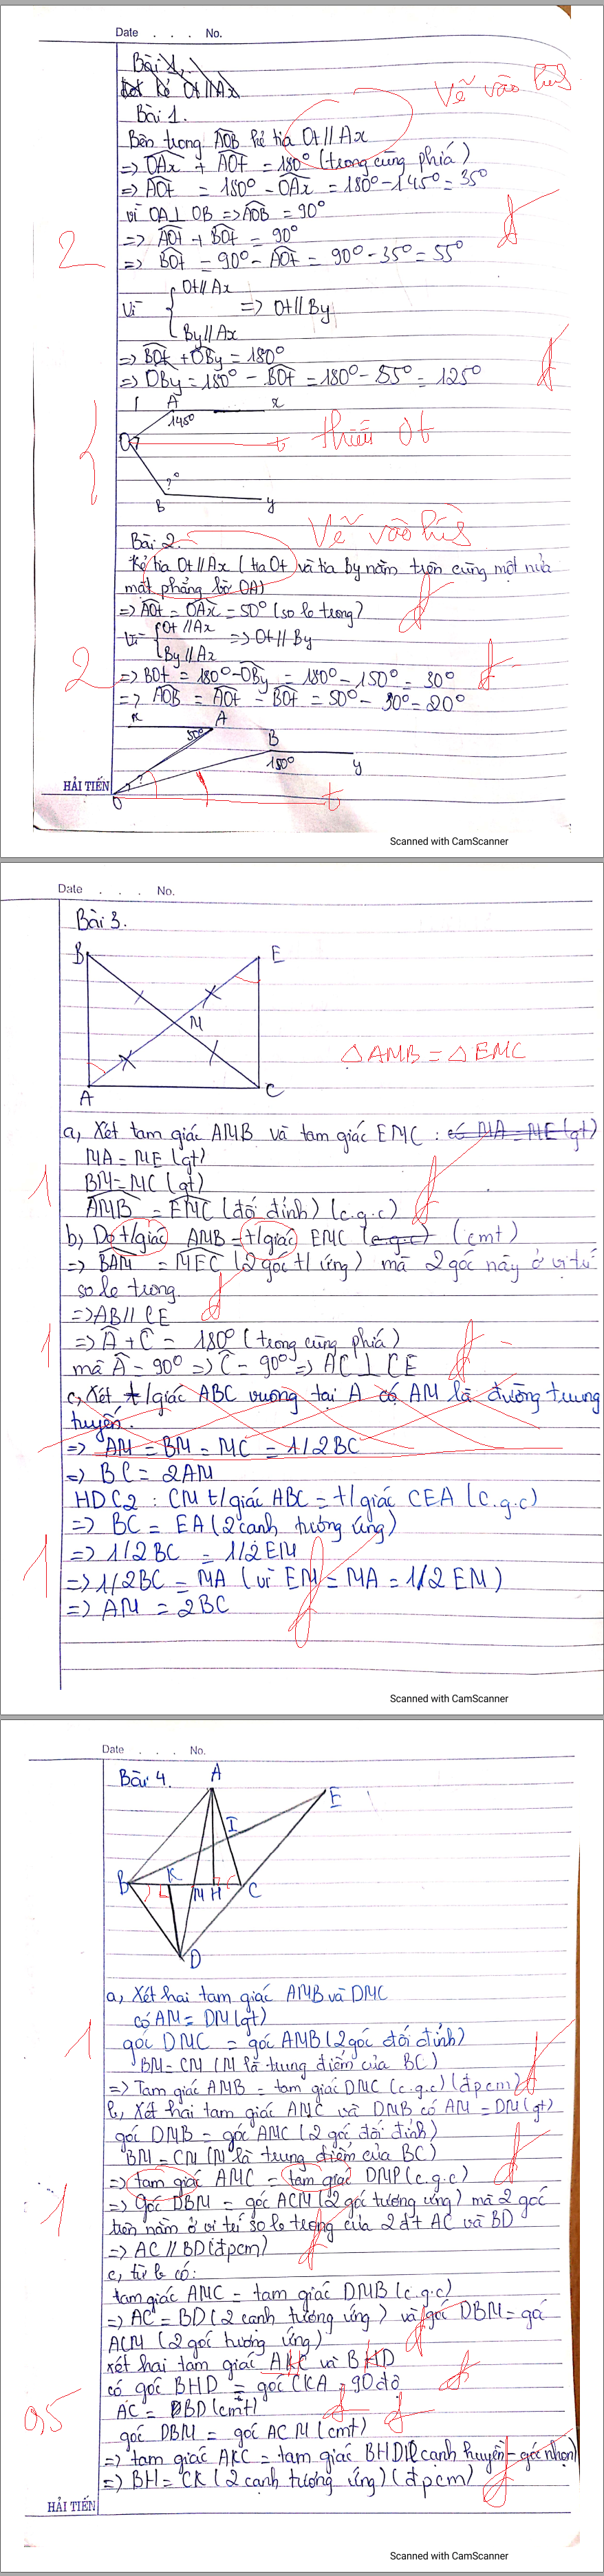 Date . . . No.
Bài 1.
kẻ Ot//Ax
Vẽ vào hình
Bài 1.
Bên trong AOB kẻ tia Ot//Ax
=> OAx + AOt = 180° (trong cùng phía)
=> AOt = 180° - OAx = 180° - 145° = 35°
vì OA⊥OB => AOB = 90°
2
=> AOt + BOt = 90°
=> BOt = 90° - AOt = 90° - 35° = 55°
Vì { Ot//Ax
By//Ax => Ot//By
=> BOt + OBy = 180°
=> OBy = 180° - BOt = 180° - 55° = 125°
A x
145°
O t thiếu Ot
?°
B y
Vẽ vào hình
Bài 2.
Kẻ tia Ot//Ax (tia Ot và tia By nằm trên cùng một nửa
mặt phẳng bờ OA)
=> AOt = OAx = 50° (so le trong)
Vì { Ot//Ax
By//Ax => Ot//By
2
=> BOt = 180° - OBy = 180° - 150° = 30°
=> AOB = AOt - BOt = 50° - 30° = 20°
x A
50° B
150° y
HẢI TIẾN ?
O t
Scanned with CamScanner
Date . . . No.
Bài 3.
B E
M
△ AMB = △ EMC
A C
a, Xét tam giác AMB và tam giác EMC : có MA = ME (gt)
MA = ME (gt)
1
BM = MC (gt)
AMB = EMC (đối đỉnh) (c.g.c)
b) Do t/giác AMB = t/giác EMC (c.g.c) (cmt)
=> BAM = MEC (2 góc t/ứng) mà 2 góc này ở vị trí
so le trong.
=> AB // CE
1
=> A + C = 180° (trong cùng phía)
mà A = 90° => C = 90° => AC ⊥ CE
c, Xét t/giác ABC vuông tại A có AM là đường trung
tuyến.
=> AM = BM = MC = 1/2BC
=> BC = 2AM
HDC2 : CM t/giác ABC = t/giác CEA (c.g.c)
=> BC = EA (2 cạnh tương ứng)
1
=> 1/2 BC = 1/2 EM
=> 1/2 BC = MA (vì EM = MA = 1/2 EM)
=> AM = 2BC
Scanned with CamScanner
Date . . . No.
Bài 4.
A E
I
B K M H C
D
a, Xét hai tam giác AMB và DMC
có AM = DM (gt)
1
góc DMC = góc AMB (2 góc đối đỉnh)
BM = CM (M là trung điểm của BC)
=> Tam giác AMB = tam giác DMC (c.g.c) (đpcm)
b, Xét hai tam giác AMC và DMB có AM = DM (gt)
góc DMB = góc AMC (2 góc đối đỉnh)
BM = CM (M là trung điểm của BC)
1
=> tam giác AMC = tam giác DMB (c.g.c)
=> Góc DBM = góc ACM (2 góc tương ứng) mà 2 góc
trên nằm ở vị trí so le trong của 2 đt AC và BD
=> AC // BD (đpcm)
c, từ b có:
tam giác AMC = tam giác DMB (c.g.c)
=> AC = BD (2 cạnh tương ứng) và góc DBM = góc
ACM (2 góc tương ứng)
xét hai tam giác AKC và BHD
có góc BHD = góc CKA = 90 độ
0,5
AC = BD (cmt)
góc DBM = góc ACM (cmt)
=> tam giác AKC = tam giác BHD (cạnh huyền - góc nhọn)
=> BH = CK (2 cạnh tương ứng) (đpcm)
HẢI TIẾN
Scanned with CamScanner